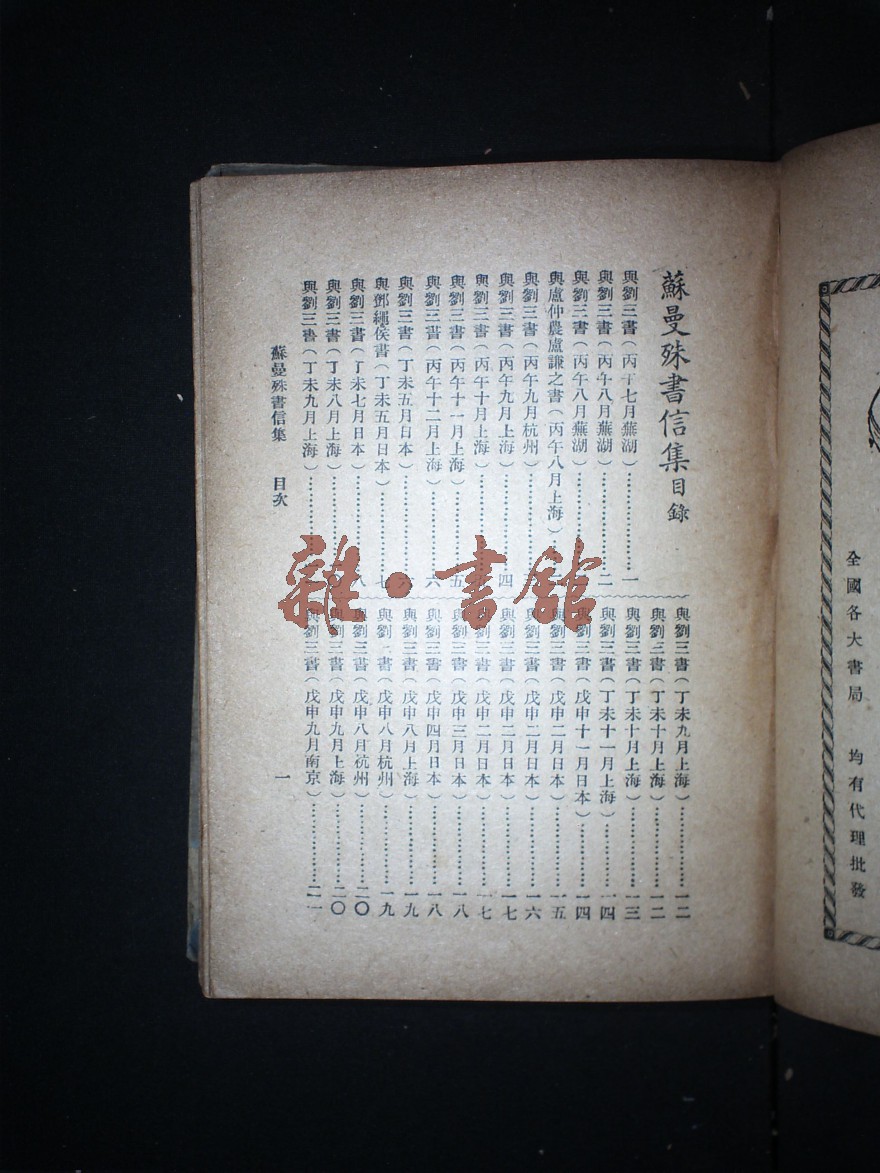 全國各大書局 均有代理批發
蘇曼殊書信集目錄
與劉三書(丙午七月蕪湖)…………一
與劉三書(丙午八月蕪湖)…………二
與劉三書(丙午八月蕪湖)…………
與盧仲農盧謙之書(丙午八月上海)
與劉三書(丙午九月杭州)…………
與劉三書(丙午九月上海)…………四
與劉三書(丙午十月上海)…………
與劉三書(丙午十一月上海)…………五
與劉三書(丙午十二月上海)…………六
與劉三書(丁未五月日本)…………六
與鄧繩侯書(丁未五月日本)…………七
與劉三書(丁未七月日本)…………八
與劉三書(丁未八月上海)…………
與劉三書(丁未九月上海)…………
與劉三書(丁未九月上海)…………一二
與劉三書(丁未十月上海)…………一二
與劉三書(丁未十月上海)…………一三
與劉三書(丁未十一月上海)…………一四
與劉三書(戊申十一月日本)…………一四
與劉三書(戊申二月日本)…………一五
與劉三書(戊申二月日本)…………一六
與劉三書(戊申二月日本)…………一七
與劉三書(戊申二月日本)…………一七
與劉三書(戊申三月日本)…………一八
與劉三書(戊申四月日本)…………一八
與劉三書(戊申八月上海)…………一九
與劉 書(戊申八月杭州)…………一九
與劉三書(戊申八月杭州)…………二〇
與劉三書(戊申九月上海)…………二〇
與劉三書(戊申九月南京)…………二一
蘇曼殊書信集 目次 一
雜·書館